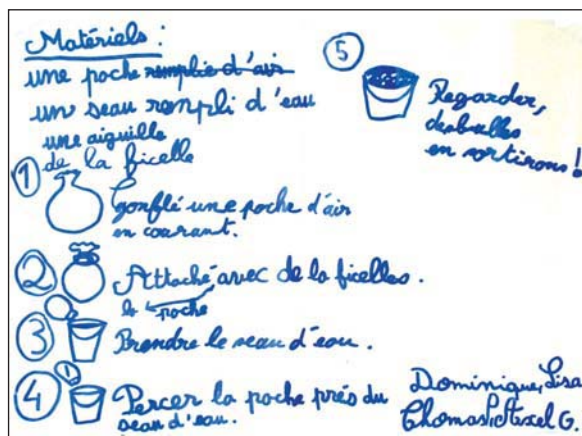 Matériels :
une poche remplie d'air
un seau rempli d'eau
une aiguille
de la ficelle
1
gonflé une poche d'air
en courant.
2
Attaché avec de la ficelles.
la poche
3
Prendre le seau d'eau.
4
Percer la poche près du
seau d'eau.
5
Regarder,
des bulles
en sortirons !
Dominique, Lisa
Thomas, Axel G.